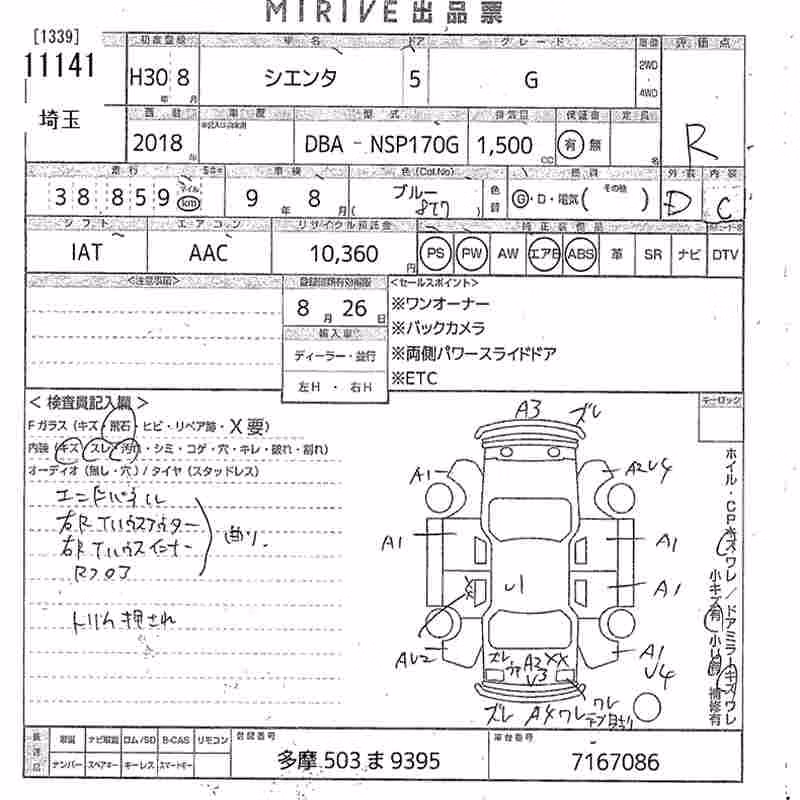 MIRIVE出品票
[1339]
11141
埼玉
初度登録 車名 ドア グレード 駆動 評価点
H30 8 シエンタ 5 G 2WD・4WD
年 月
車歴 型式 排気量 保証書 定員
2018 DBA - NSP170G 1,500 CC 有 無 名 R
走行 車検 色(Col.No) 燃料 外装 内装
38859 マイル km 9年 8月 ブルー 827 色替 G・D・電気( その他 ) D C
シフト エアコン リサイクル預託金 純正装備品
IAT AAC 10,360円 PS PW AW エアB ABS 革 SR ナビ DTV
<注意事項> <セールスポイント>
8月26日
※ワンオーナー
※バックカメラ
※両側パワースライドドア
※ETC
輸入車
ディーラー・並行
左H ・ 右H
キーロック
<検査員記入欄>
Fガラス(キズ・飛石・ヒビ・リペア跡・X要)
内装(キズ・スレ・汚れ・シミ・コゲ・穴・キレ・破れ・割れ)
オーディオ(無し・穴)/タイヤ(スタッドレス)
エンドパネル
右R Tハウスアウター
右R Tハウスインナー
Rフロア
曲り
トリム押され
A3 ズレ
A1 A2U4
A1 A1
U1 A1
AU2 A1 U4
ズレ A2 XX
U3
ズレ A4ワレ ワレ
ホイル・CPキズワレ/ドアミラーキズワレ
小キズ有 小凹有 補修有
取説 ナビ取説 ロム/SD B-CAS リモコン
ナンバー スペアキー キーレス スマートキー
登録番号 車台番号
多摩 503 ま 9395 7167086